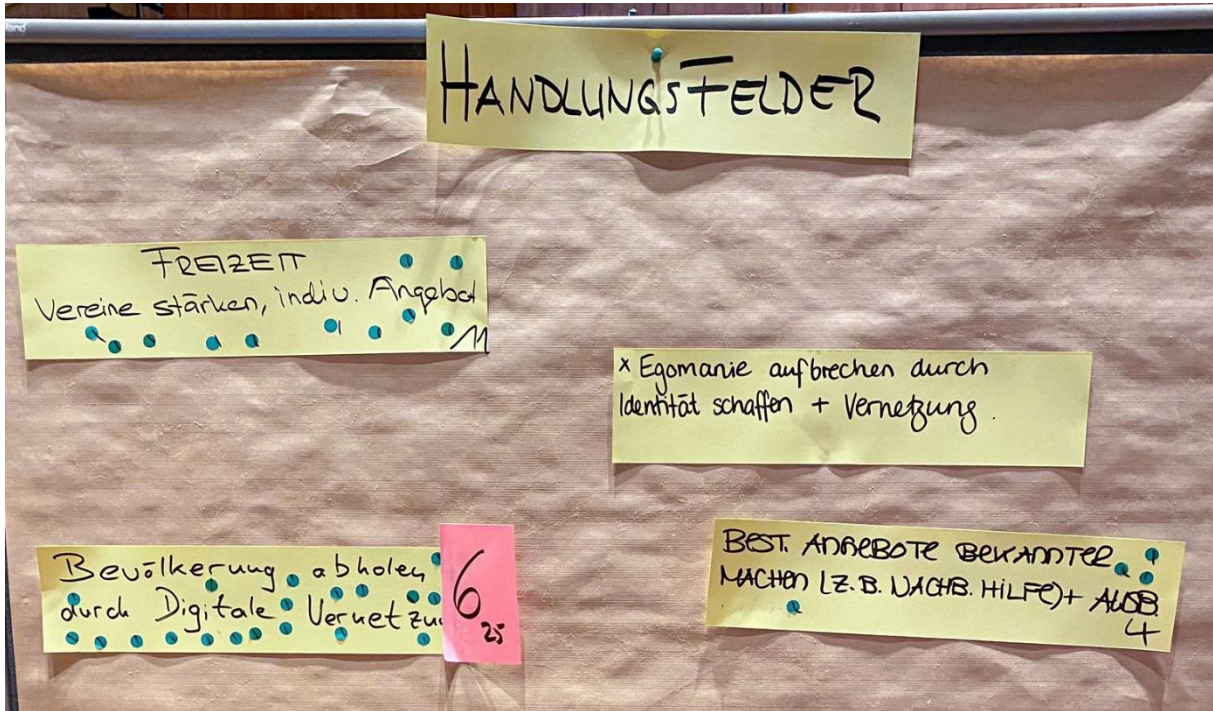 HANDLUNGSFELDER
FREIZEIT
Vereine stärken, indiv. Angebot
11
x Egomanie aufbrechen durch
Identität schaffen + Vernetzung.
Bevölkerung abholen
durch Digitale Vernetzu
6
25
BEST. ANGEBOTE BEKANNTER
MACHEN (Z.B. NACHB. HILFE) + AUSB.
4